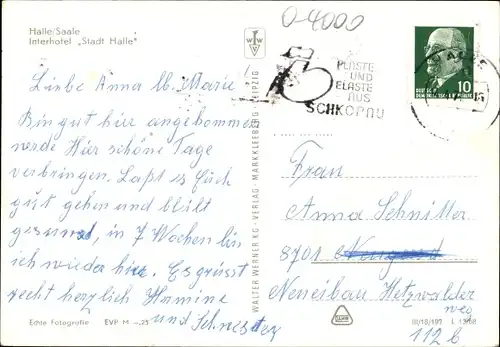 Halle/Saale
Interhotel „Stadt Halle"
0-4000
PLASTE
UND
ELASTE
AUS
SCHKOPAU
10
Liebe Anna u. Marie!
Bin gut hier angekommen
werde Hier schöne Tage
verbringen. Laßt es Euch
gut gehen und bleibt
gesund, in 7 Wochen bin
ich wieder hier. Es grüsst
recht herzlich Hermine
und Schwester
Frau
Anna Schnitter
8701
Neueibau Hetzwalder
weg
112 b
WALTER WERNER KG · VERLAG · MARKKLEEBERG · LEIPZIG
Echte Fotografie EVP M –.25
III/18/197 L 13/68